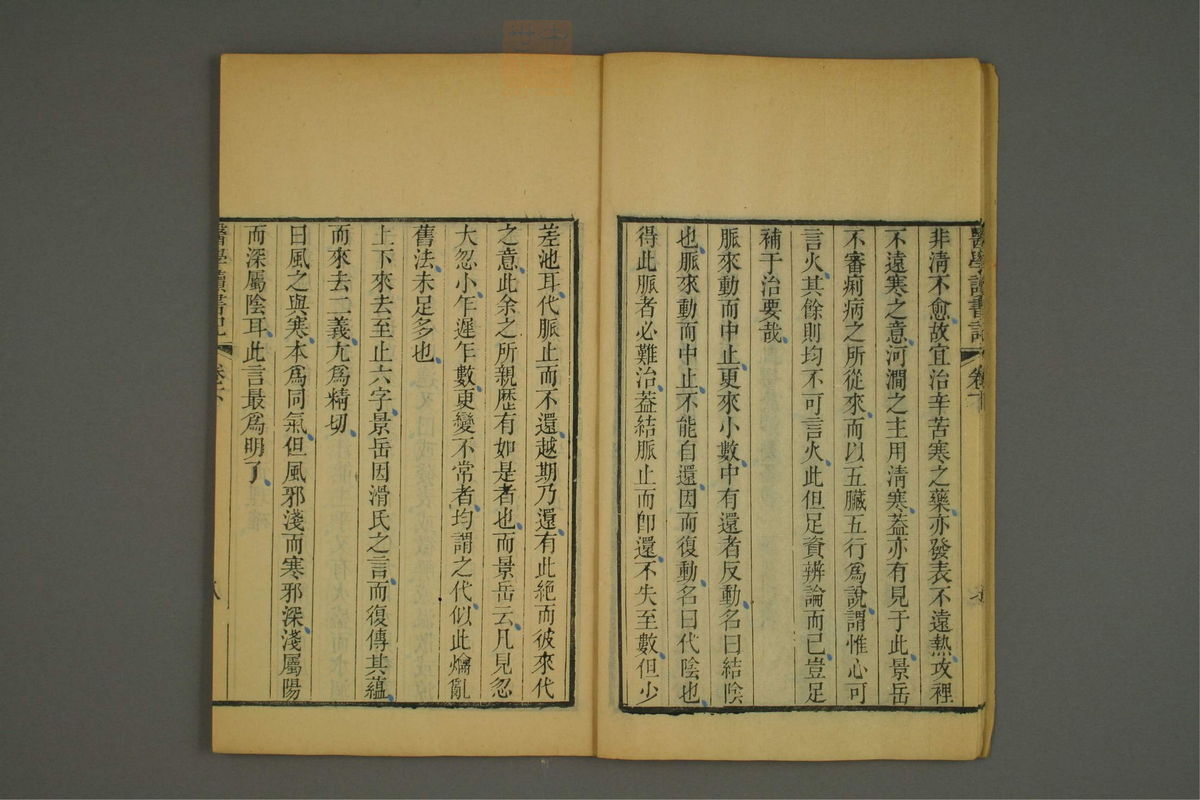 醫學讀書記 卷下
非清不愈故宜治辛苦寒之藥亦發表不遠熱攻裡
不遠寒之意河澗之主用清寒葢亦有見于此景岳
不審痢病之所從來而以五臟五行爲說謂惟心可
言火其餘則均不可言火此但足資辨論而已豈足
補于治要哉
脈來動而中止更來小數中有還者反動名曰結陰
也脈來動而中止不能自還因而復動名曰代陰也
得此脈者必難治葢結脈止而卽還不失至數但少
差池耳代脈止而不還越期乃還有此絕而彼來代
之意此余之所親歷有如是者也而景岳云凡見忽
大忽小乍遲乍數更變不常者均謂之代似此爚亂
舊法未足多也
上下來去至止六字景岳因滑氏之言而復傳其蘊
而來去二義尤爲精切
曰風之與寒本爲同氣但風邪淺而寒邪深淺屬陽
而深屬陰耳此言最爲明了
醫學讀書記 卷下 八